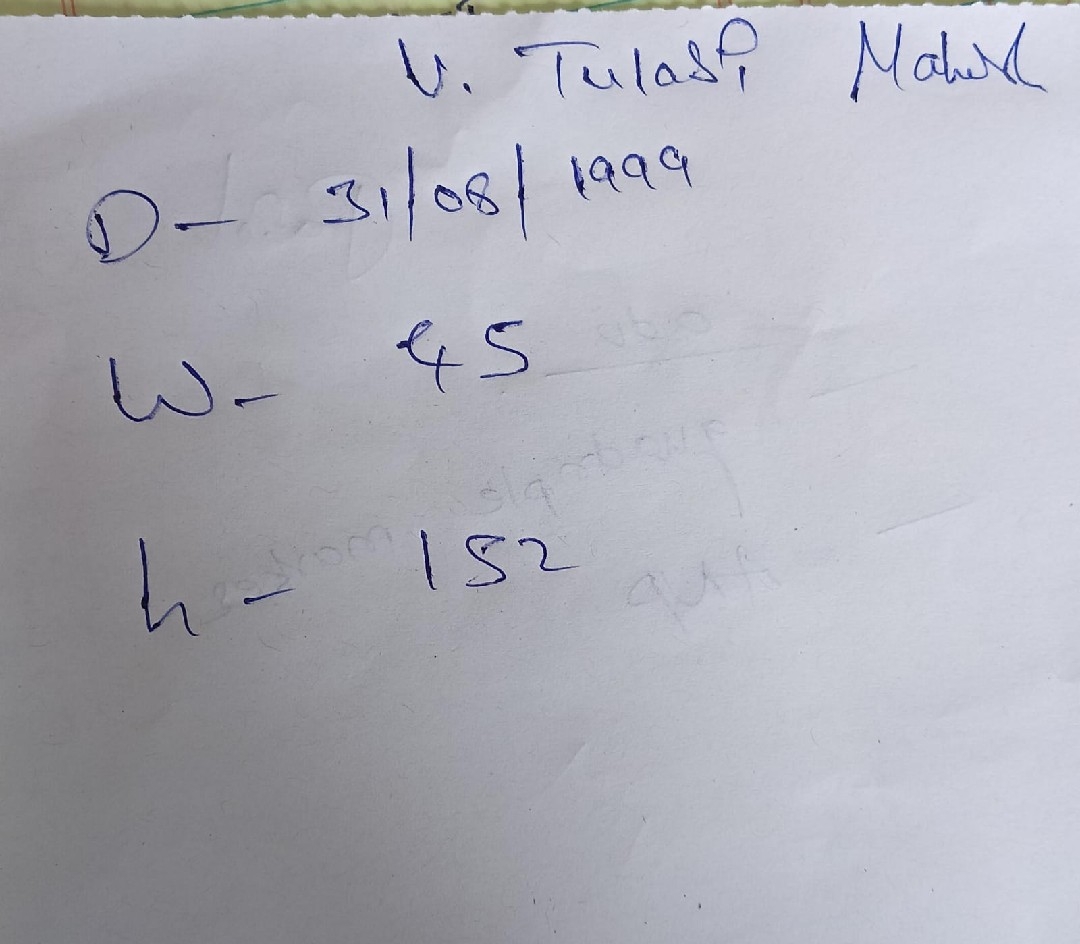 V. Tulasi
D- 31/08/1999
W- 45
h- 152